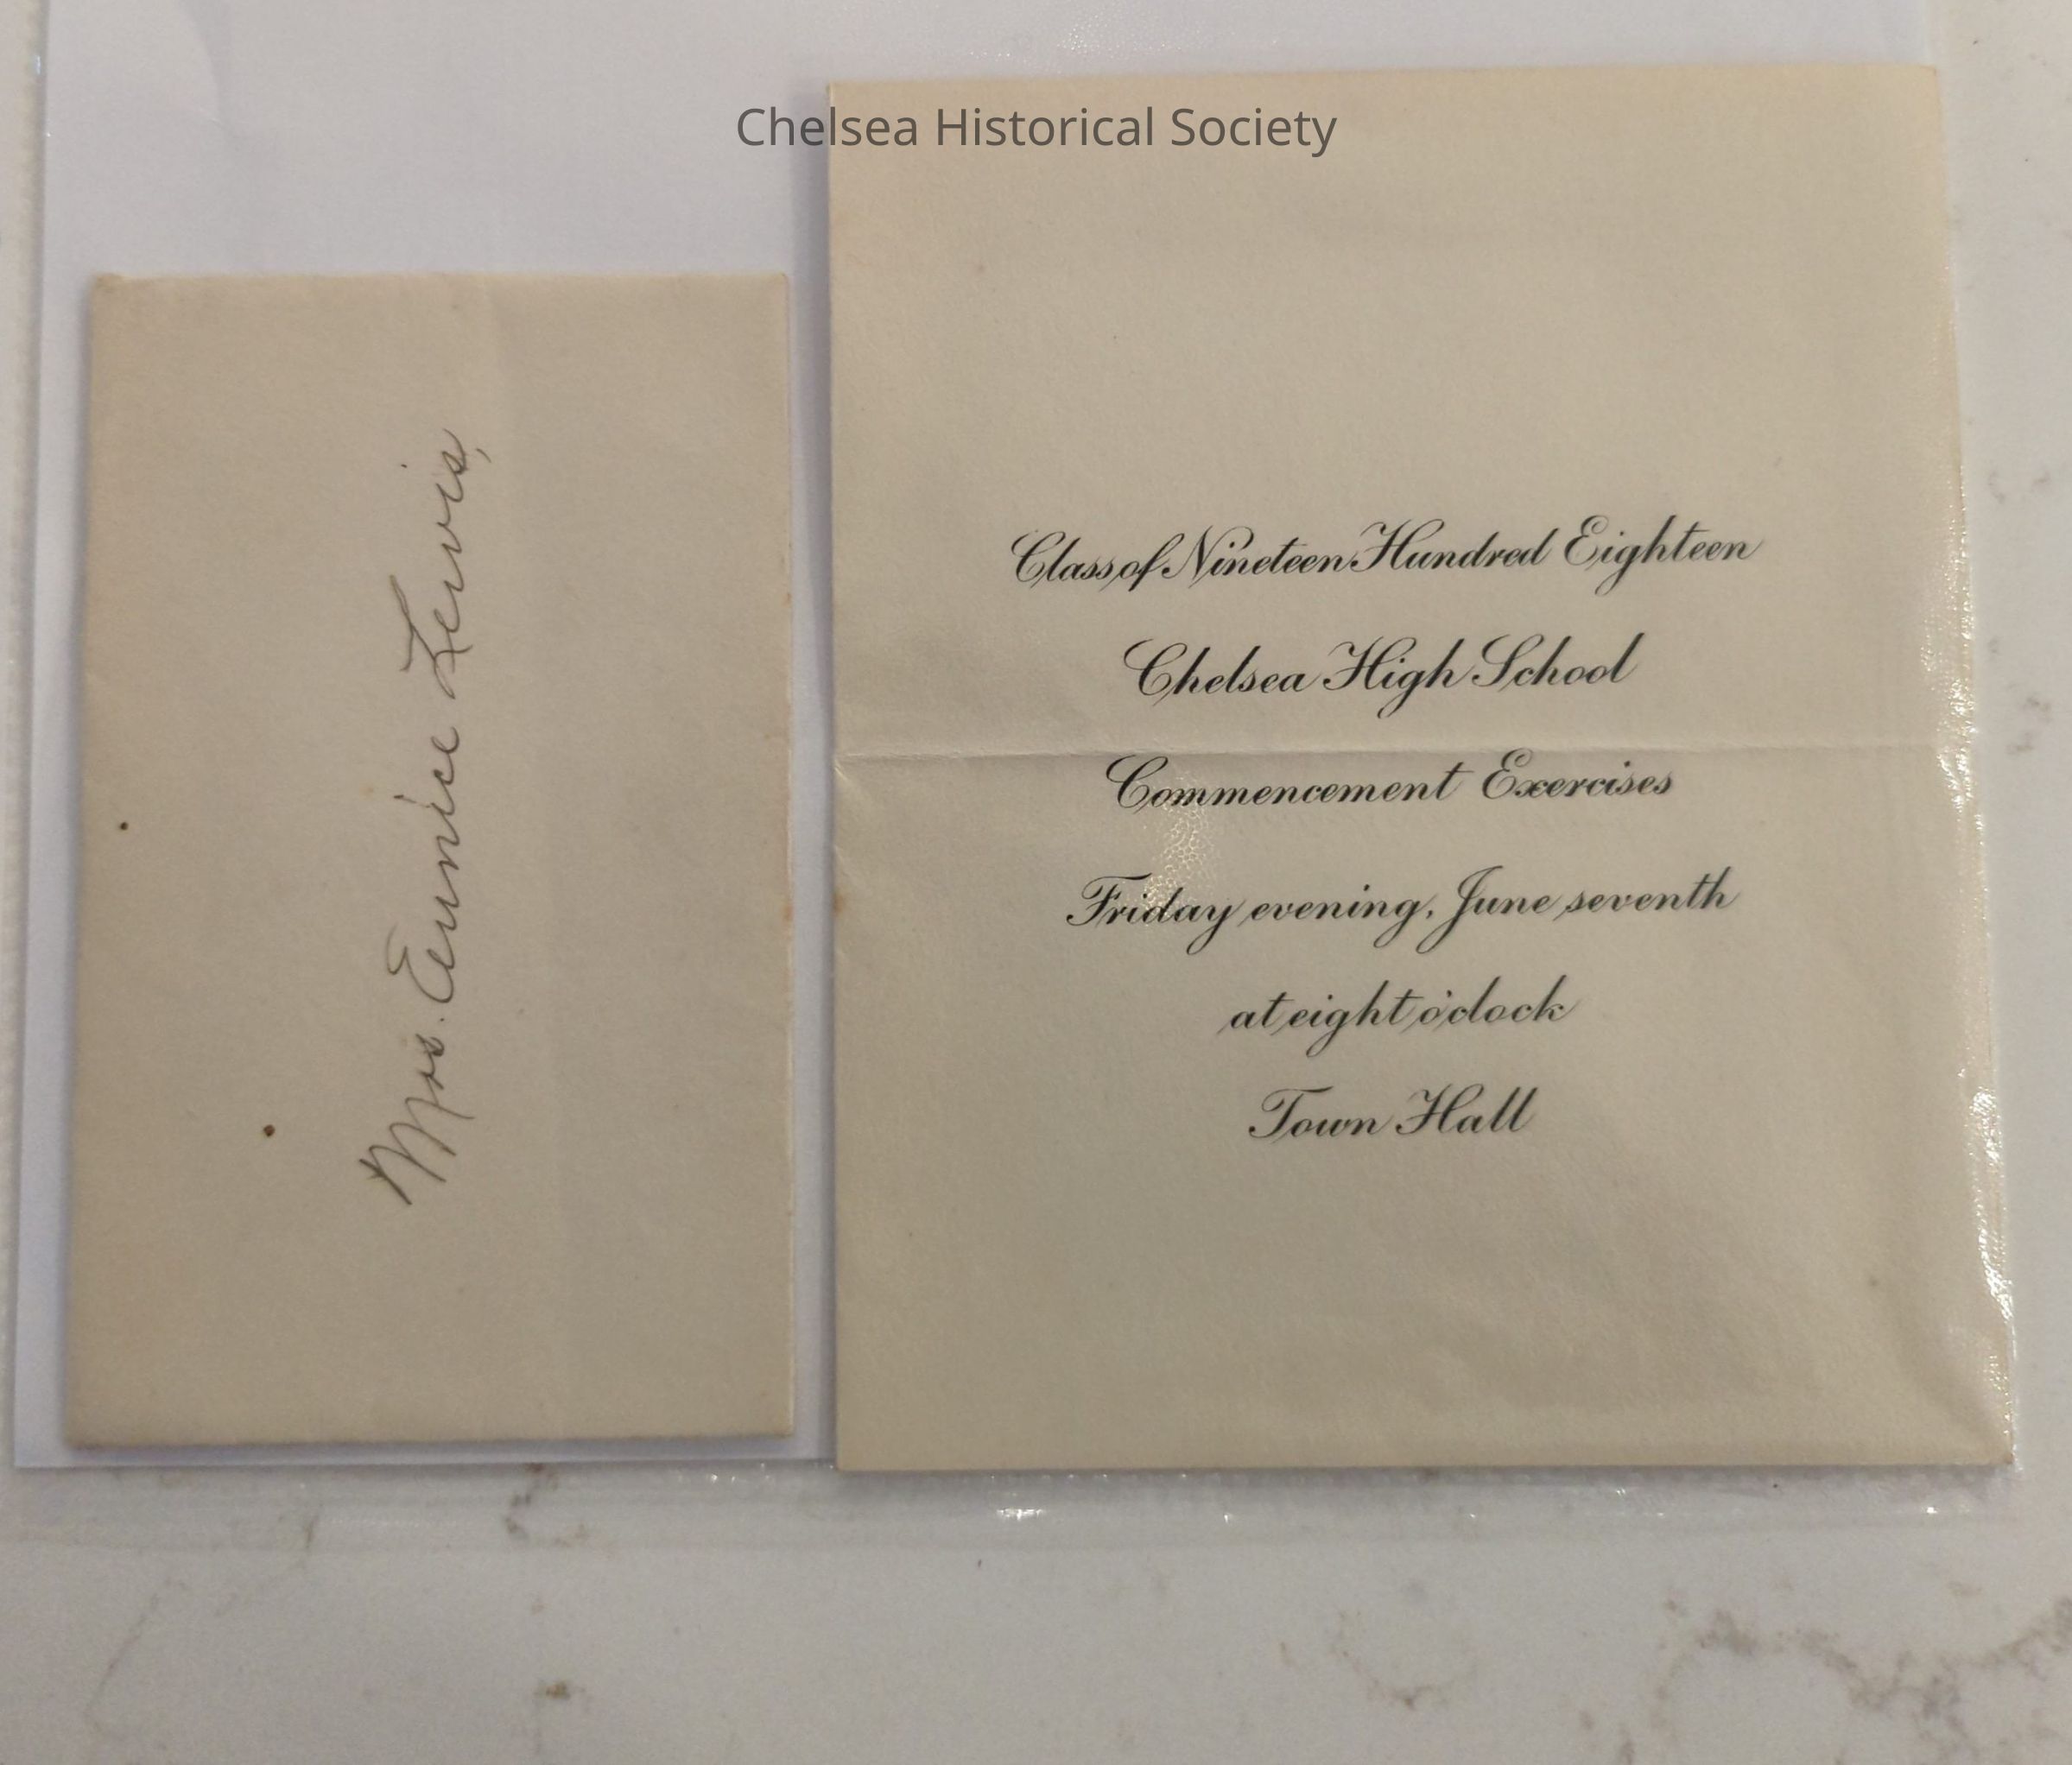 Chelsea Historical Society
Mrs. Eunice Lewis,
Class of Nineteen Hundred Eighteen
Chelsea High School
Commencement Exercises
Friday evening, June seventh
at eight o'clock
Town Hall